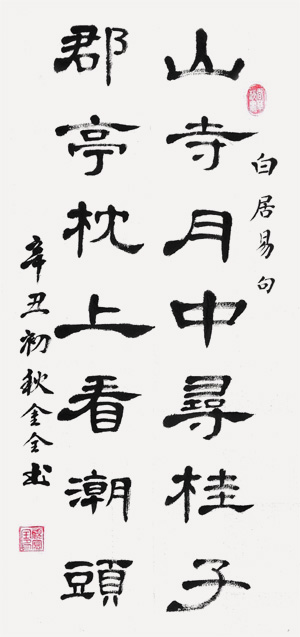 山寺月中尋桂子
白居易句
郡亭枕上看潮頭
辛丑初秋金全书